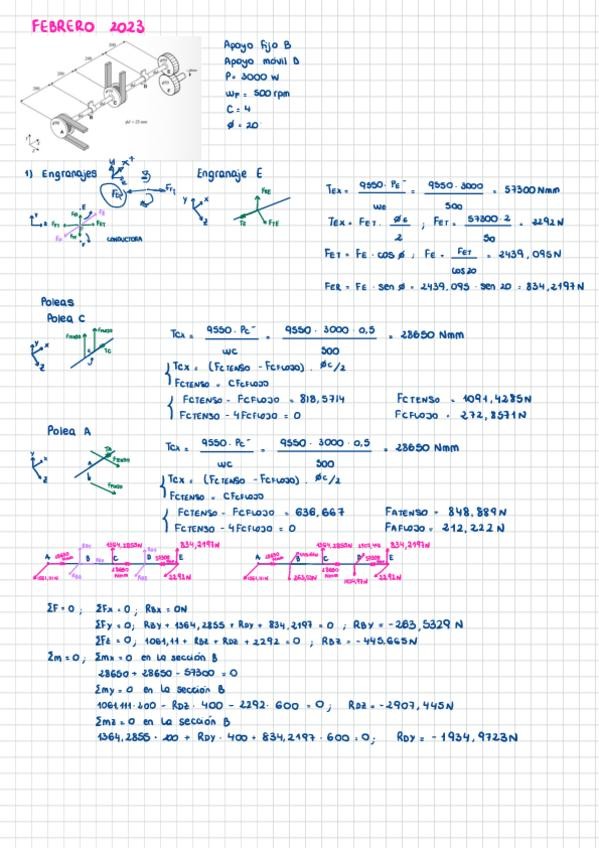 FEBRERO 2023
Apoyo fijo B
Apoyo móvil D
P = 3000 W
ωF = 500 rpm
C = 4
Ø = 20
1) Engranajes
Engranaje E
CONDUCTORA
TEX = 9550 · PE / ωE = 9550 · 3000 / 500 = 57300 Nmm
TEX = FET · ØE / 2 ; FET = 57300 · 2 / 50 = 2292N
FET = FE · cos Ø ; FE = FET / cos 20 = 2439,095N
FER = FE · sen Ø = 2439,095 · sen 20 = 834,2197N
Poleas
Polea C
TCX = 9550 · PC / ωC = 9550 · 3000 · 0,5 / 500 = 28650 Nmm
TCX = (FCTENSO - FCFLOJO) · ØC/2
FCTENSO = CFCFLOJO
FCTENSO - FCFLOJO = 818,5714
FCTENSO - 4FCFLOJO = 0
FCTENSO = 1091,4285N
FCFLOJO = 272,8571N
Polea A
TCX = 9550 · PC / ωC = 9550 · 3000 · 0,5 / 500 = 28650 Nmm
TCX = (FCTENSO - FCFLOJO) · ØC/2
FCTENSO = CFCFLOJO
FCTENSO - FCFLOJO = 636,667
FCTENSO - 4FCFLOJO = 0
FATENSO = 848,889N
FAFLOJO = 212,222N
A B C D E
1364,2855N 834,2197N
28650 Nmm
2292N
A B C D E
1364,2855N 834,2197N
28650 Nmm
2292N
ΣF = 0 ; ΣFx = 0 ; RBX = 0N
ΣFy = 0 ; RBY + 1364,2855 + RDY + 834,2197 = 0 ; RBY = -263,5329 N
ΣFz = 0 ; 1061,11 + RBZ + RDZ + 2292 = 0 ; RBZ = -445,665N
Σm = 0 ; Σmx = 0 en la sección B
28650 + 28650 - 57300 = 0
Σmy = 0 en la sección B
1061,111 · 200 - RDZ · 400 - 2292 · 600 = 0 ; RDZ = -2907,445N
Σmz = 0 en la sección B
1364,2855 · 200 + RDY · 400 + 834,2197 · 600 = 0 ; RDY = -1934,9723N